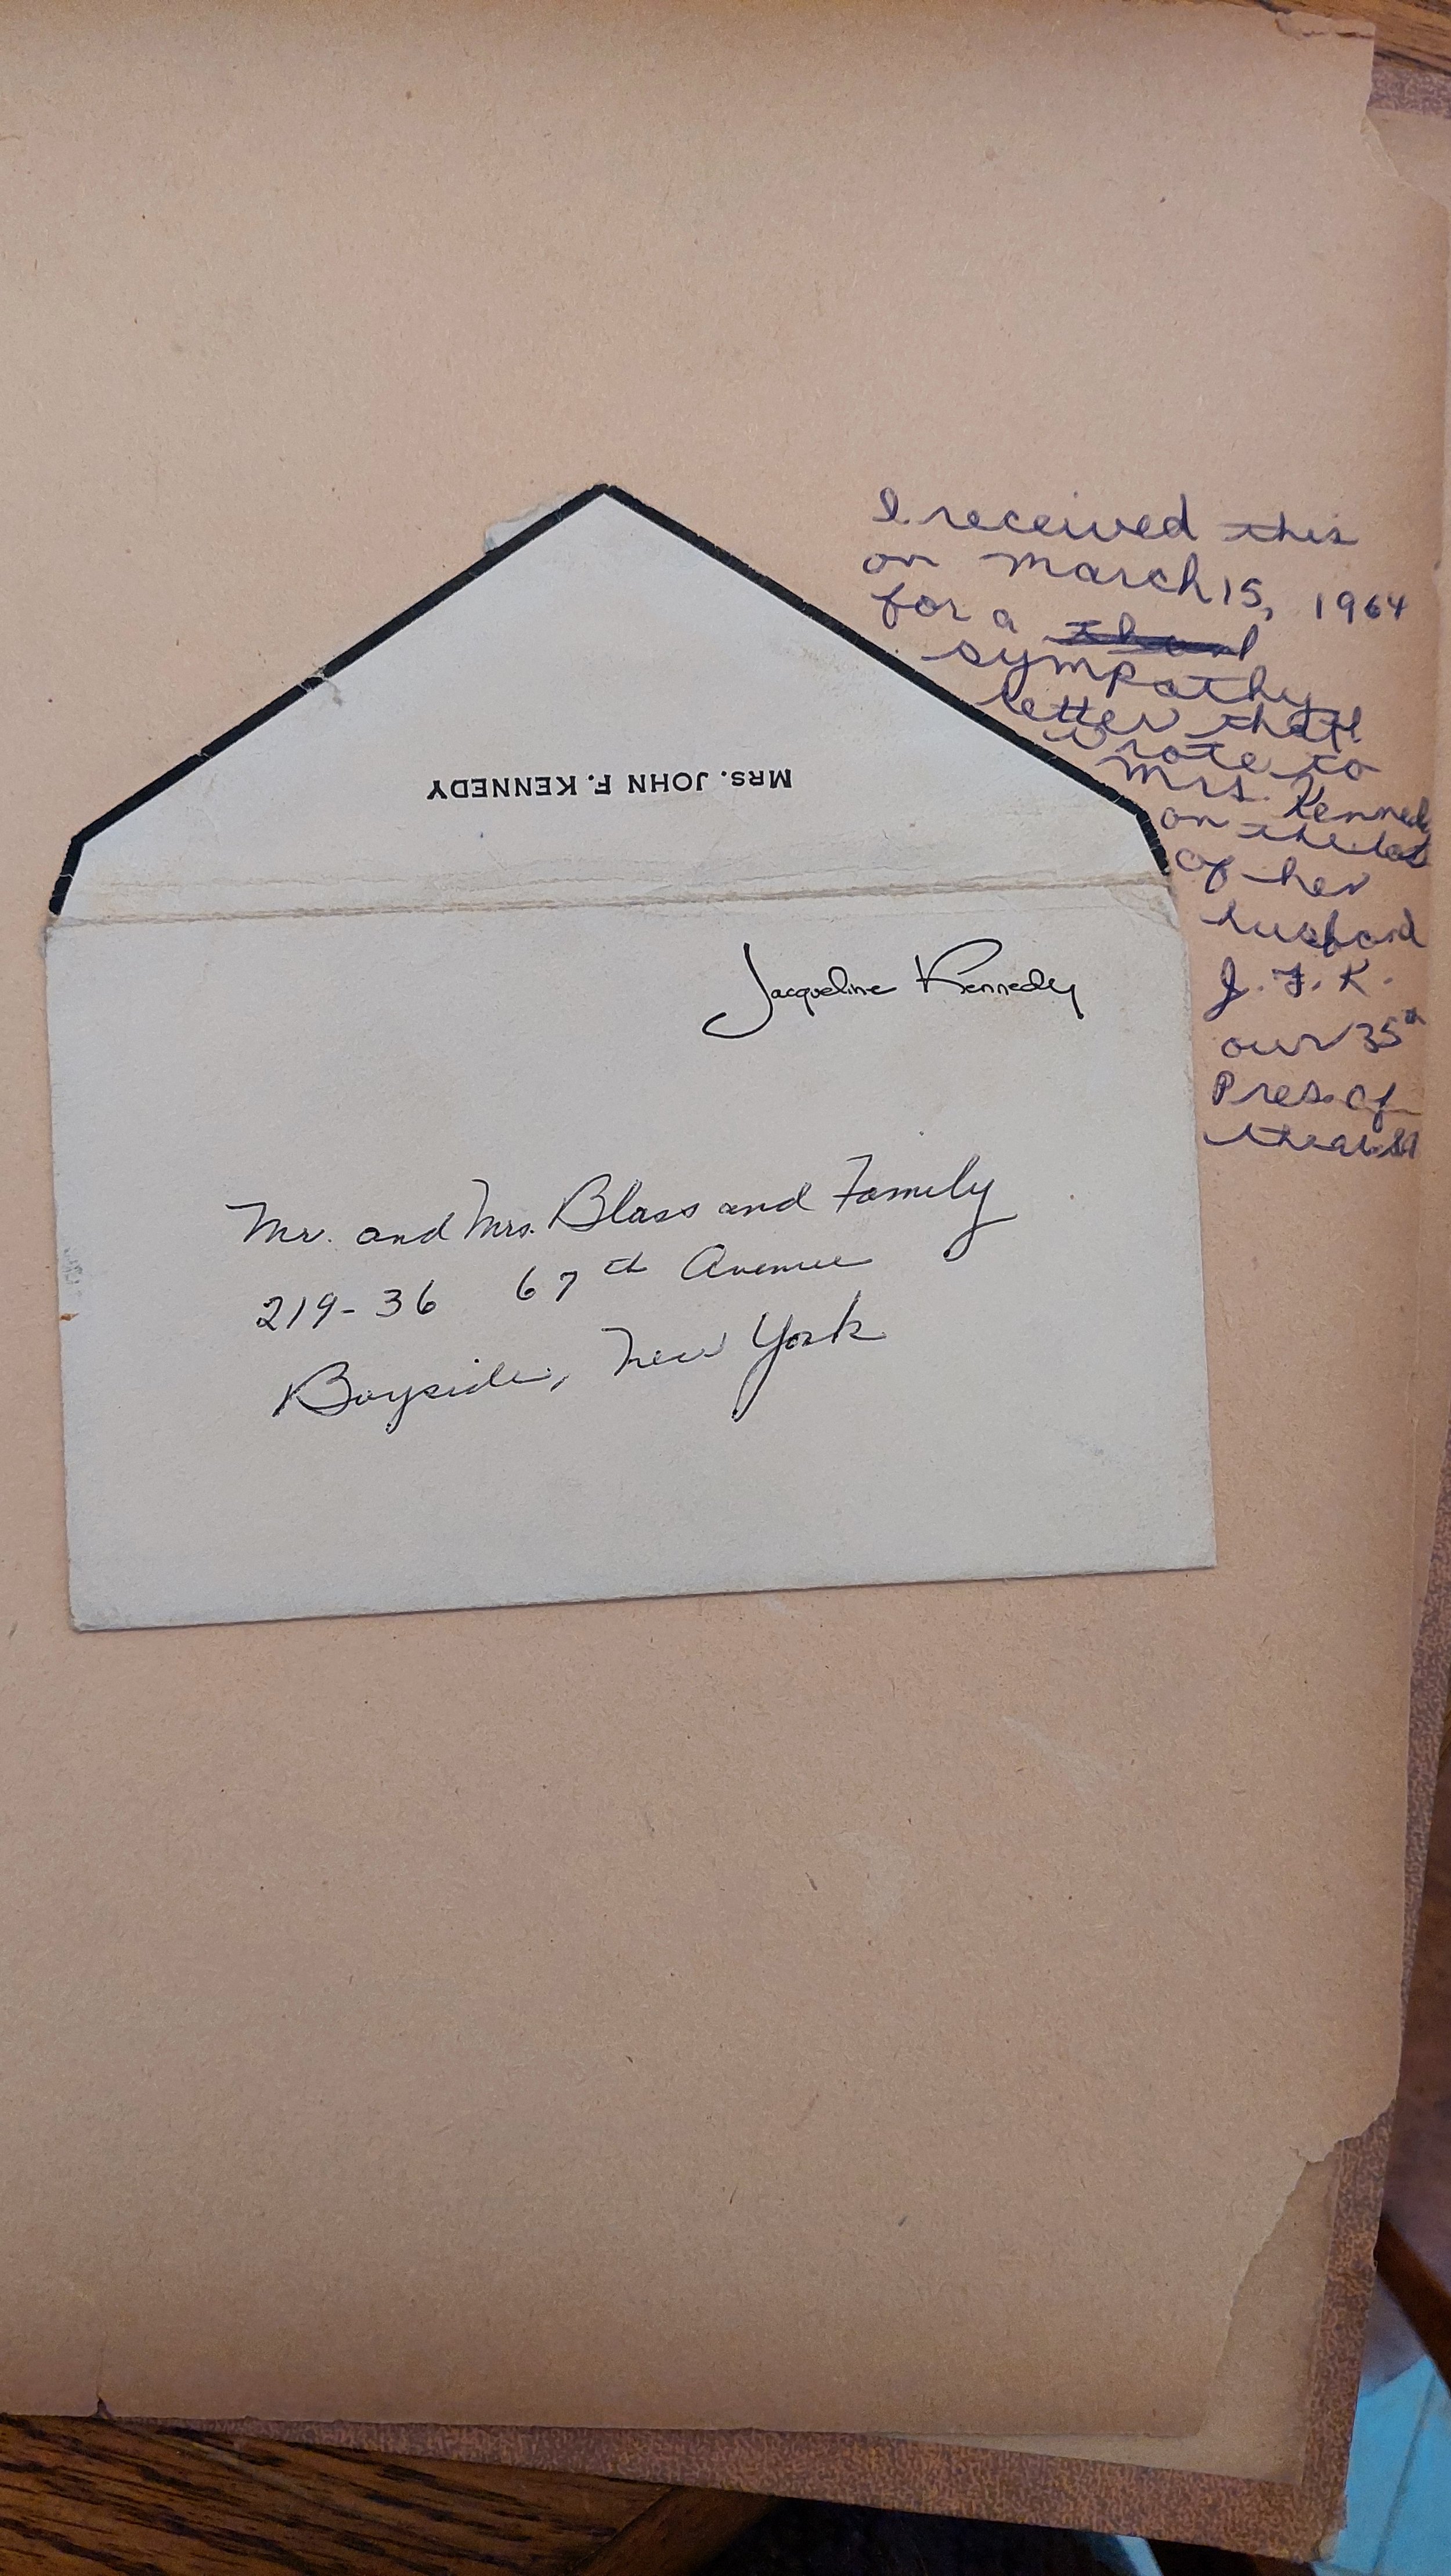 MRS. JOHN F. KENNEDY
Jacqueline Kennedy
Mr. and Mrs. Blass and Family
219-36 67th Avenue
Bayside, New York
I received this
on March 15, 1964
for a
sympathy
letter that I
wrote to
Mrs. Kennedy
on the
of her
husband
J. F. K.
our 35th
Pres. of
the